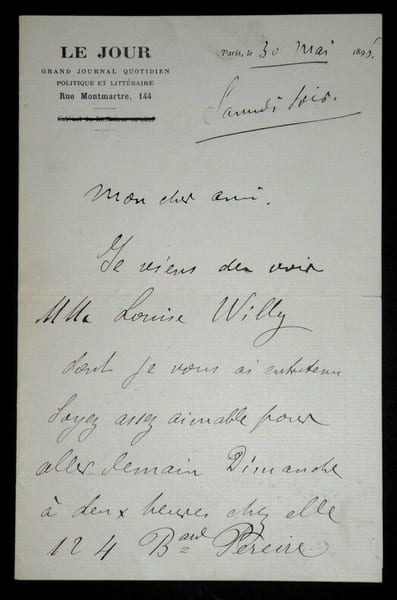 LE JOUR
GRAND JOURNAL QUOTIDIEN
POLITIQUE ET LITTÉRAIRE
Rue Montmartre, 144
Cabinet du Rédacteur en chef
Paris, le 30 Mai 1895
Samedi soir.
Mon cher ami.
Je viens de voir
Mlle Louise Willy
dont je vous ai entretenu
Soyez assez aimable pour
aller demain Dimanche
à deux heures chez elle
124 Bard Péreire